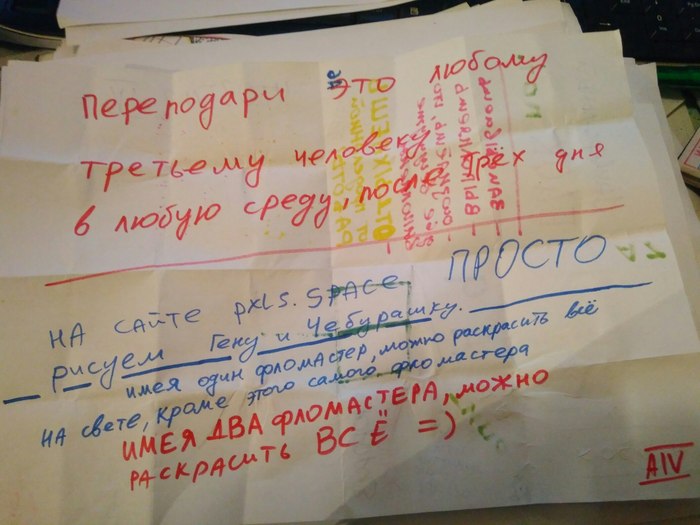 Переподари это любому
третьему человеку
в любую среду, после трех дня
ПРОСТО
НА САЙТЕ pxls.SPACE
рисуем Гену и Чебурашку.
имея один фломастер, можно раскрасить всё
на свете, кроме этого самого фломастера
ИМЕЯ ДВА ФЛОМАСТЕРА, МОЖНО
РАСКРАСИТЬ ВСЁ =)
AIV